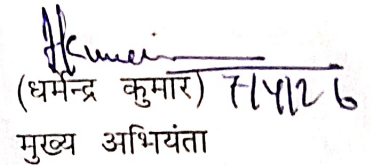 (धर्मेन्द्र कुमार) 7/4/26
मुख्य अभियंता